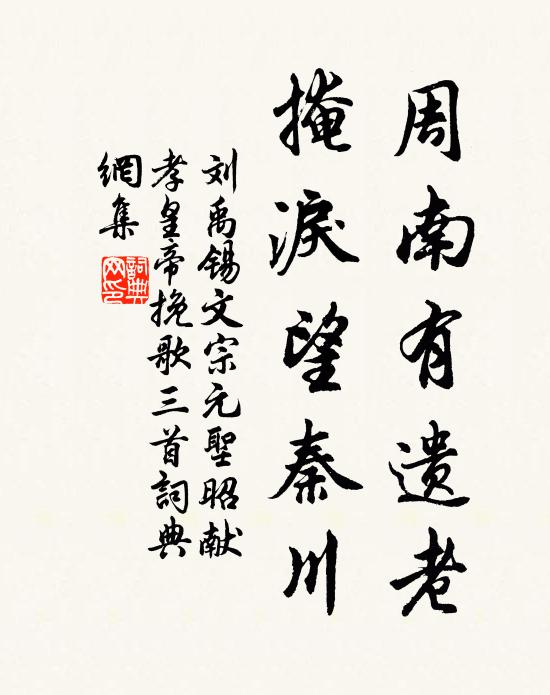 周南有遗老
掩淚望秦川
刘禹锡文宗元聖昭献
孝皇帝挽歌三首詞典
網集
詞典網印